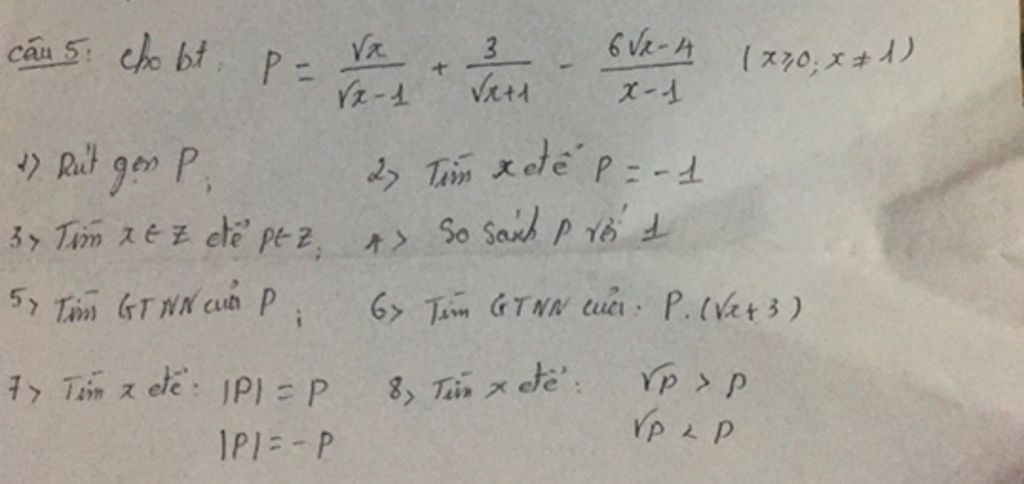 Câu 5: Cho bt. P = √x/(√x-1) + 3/(√x+1) - (6√x-4)/(x-1) (x≥0; x≠1)
1> Rút gọn P; 2> Tìm x để P = -1
3> Tìm x ∈ Z để P ∈ Z; 4> So sánh P với 1
5> Tìm GTNN của P; 6> Tìm GTNN của: P.(√x+3)
7> Tìm x để: |P| = P 8> Tìm x để: √P > P
|P| = -P √P < P